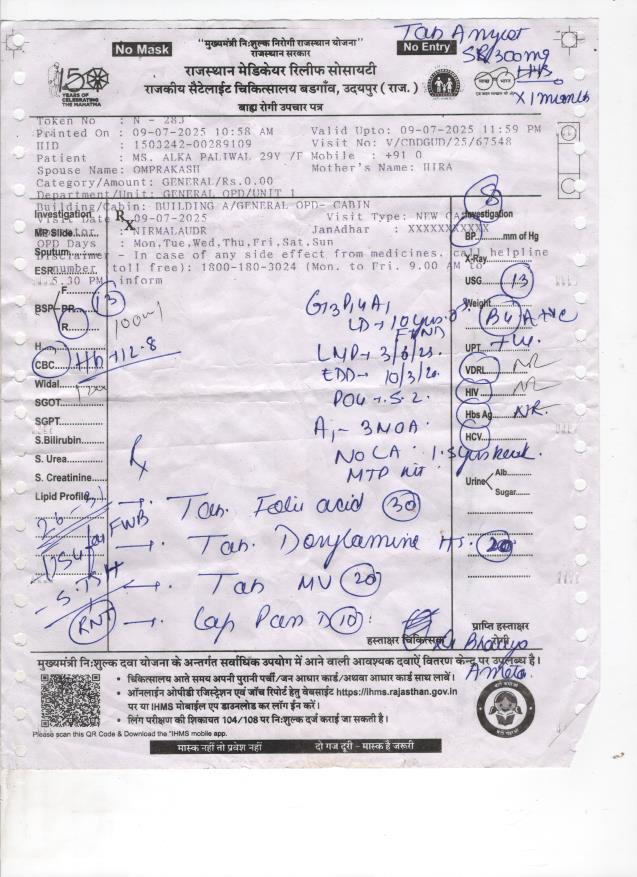 "मुख्यमंत्री निःशुल्क निरोगी राजस्थान योजना"
राजस्थान सरकार
No Mask
No Entry
Tab
SR 300mg
HS
X 1 month
राजस्थान मेडिकेयर रिलीफ सोसायटी
राजकीय सैटेलाईट चिकित्सालय बडगाँव, उदयपुर (राज.)
बाह्य रोगी उपचार पत्र
150
YEARS OF
CELEBRATING
THE MAHATMA
Token No : N - 283
Printed On : 09-07-2025 10:58 AM Valid Upto: 09-07-2025 11:59 PM
HID : 1503242-00289109 Visit No: V/CBDGUD/25/67548
Patient : MS. ALKA PALIWAL 29Y /F Mobile : +91 0
Spouse Name: OMPRAKASH Mother's Name: HIRA
Category/Amount: GENERAL/Rs.0.00
Department/Unit: GENERAL OPD/UNIT 1
Building/Cabin: BUILDING A/GENERAL OPD- CABIN
Visit Date : 09-07-2025 Visit Type: NEW
NIRMALAUDR JanAdhar : XXXXXXXXXXX
OPD Days : Mon,Tue,Wed,Thu,Fri,Sat,Sun
Disclaimer - In case of any side effect from medicines, call helpline
number toll free): 1800-180-3024 (Mon. to Fri. 9.00 AM to
5.30 PM inform
Investigation
Rx
MP Slide
Sputum
ESR
F
BSP PR 13
R. 100
H
CBC Hb 12.8
Widal
SGOT
SGPT
S.Bilirubin
S. Urea
S. Creatinine
Lipid Profile
G3P1A1
LD → 10 yrs
FTND
LMP → 3/6/25
EDD → 10/3/26
POG → 5.2
A1 - 3 MOA
MTP kit
Investigation
8
BP mm of Hg
X-Ray
USG 13
Weight
B4 A+ve
UPT +ve
VDRL NR
HIV NR
Hbs Ag NR
HCV
Urine Alb.
Sugar
Rx
→ Tab. Folic acid 30
→ Tab. Doxylamine HS. 20
→ Tab MV 20
→ Cap Pan D 10
FWB
RNT
हस्ताक्षर चिकित्सक
प्राप्ति हस्ताक्षर
रोगी
मुख्यमंत्री निःशुल्क दवा योजना के अन्तर्गत सर्वाधिक उपयोग में आने वाली आवश्यक दवाऐं वितरण केन्द्र पर उपलब्ध है।
• चिकित्सालय आते समय अपनी पुरानी पर्ची/जन आधार कार्ड/अथवा आधार कार्ड साथ लावें।
• ऑनलाईन ओपीडी रजिस्ट्रेशन एवं जाँच रिपोर्ट हेतु वेबसाईट https://ihms.rajasthan.gov.in
पर या IHMS मोबाईल एप डाउनलोड कर लॉग ईन करें।
• लिंग परीक्षण की शिकायत 104/108 पर निःशुल्क दर्ज कराई जा सकती है।
Please scan this QR Code & Download the "IHMS mobile app.
मास्क नहीं तो प्रवेश नहीं दो गज दूरी - मास्क है जरूरी